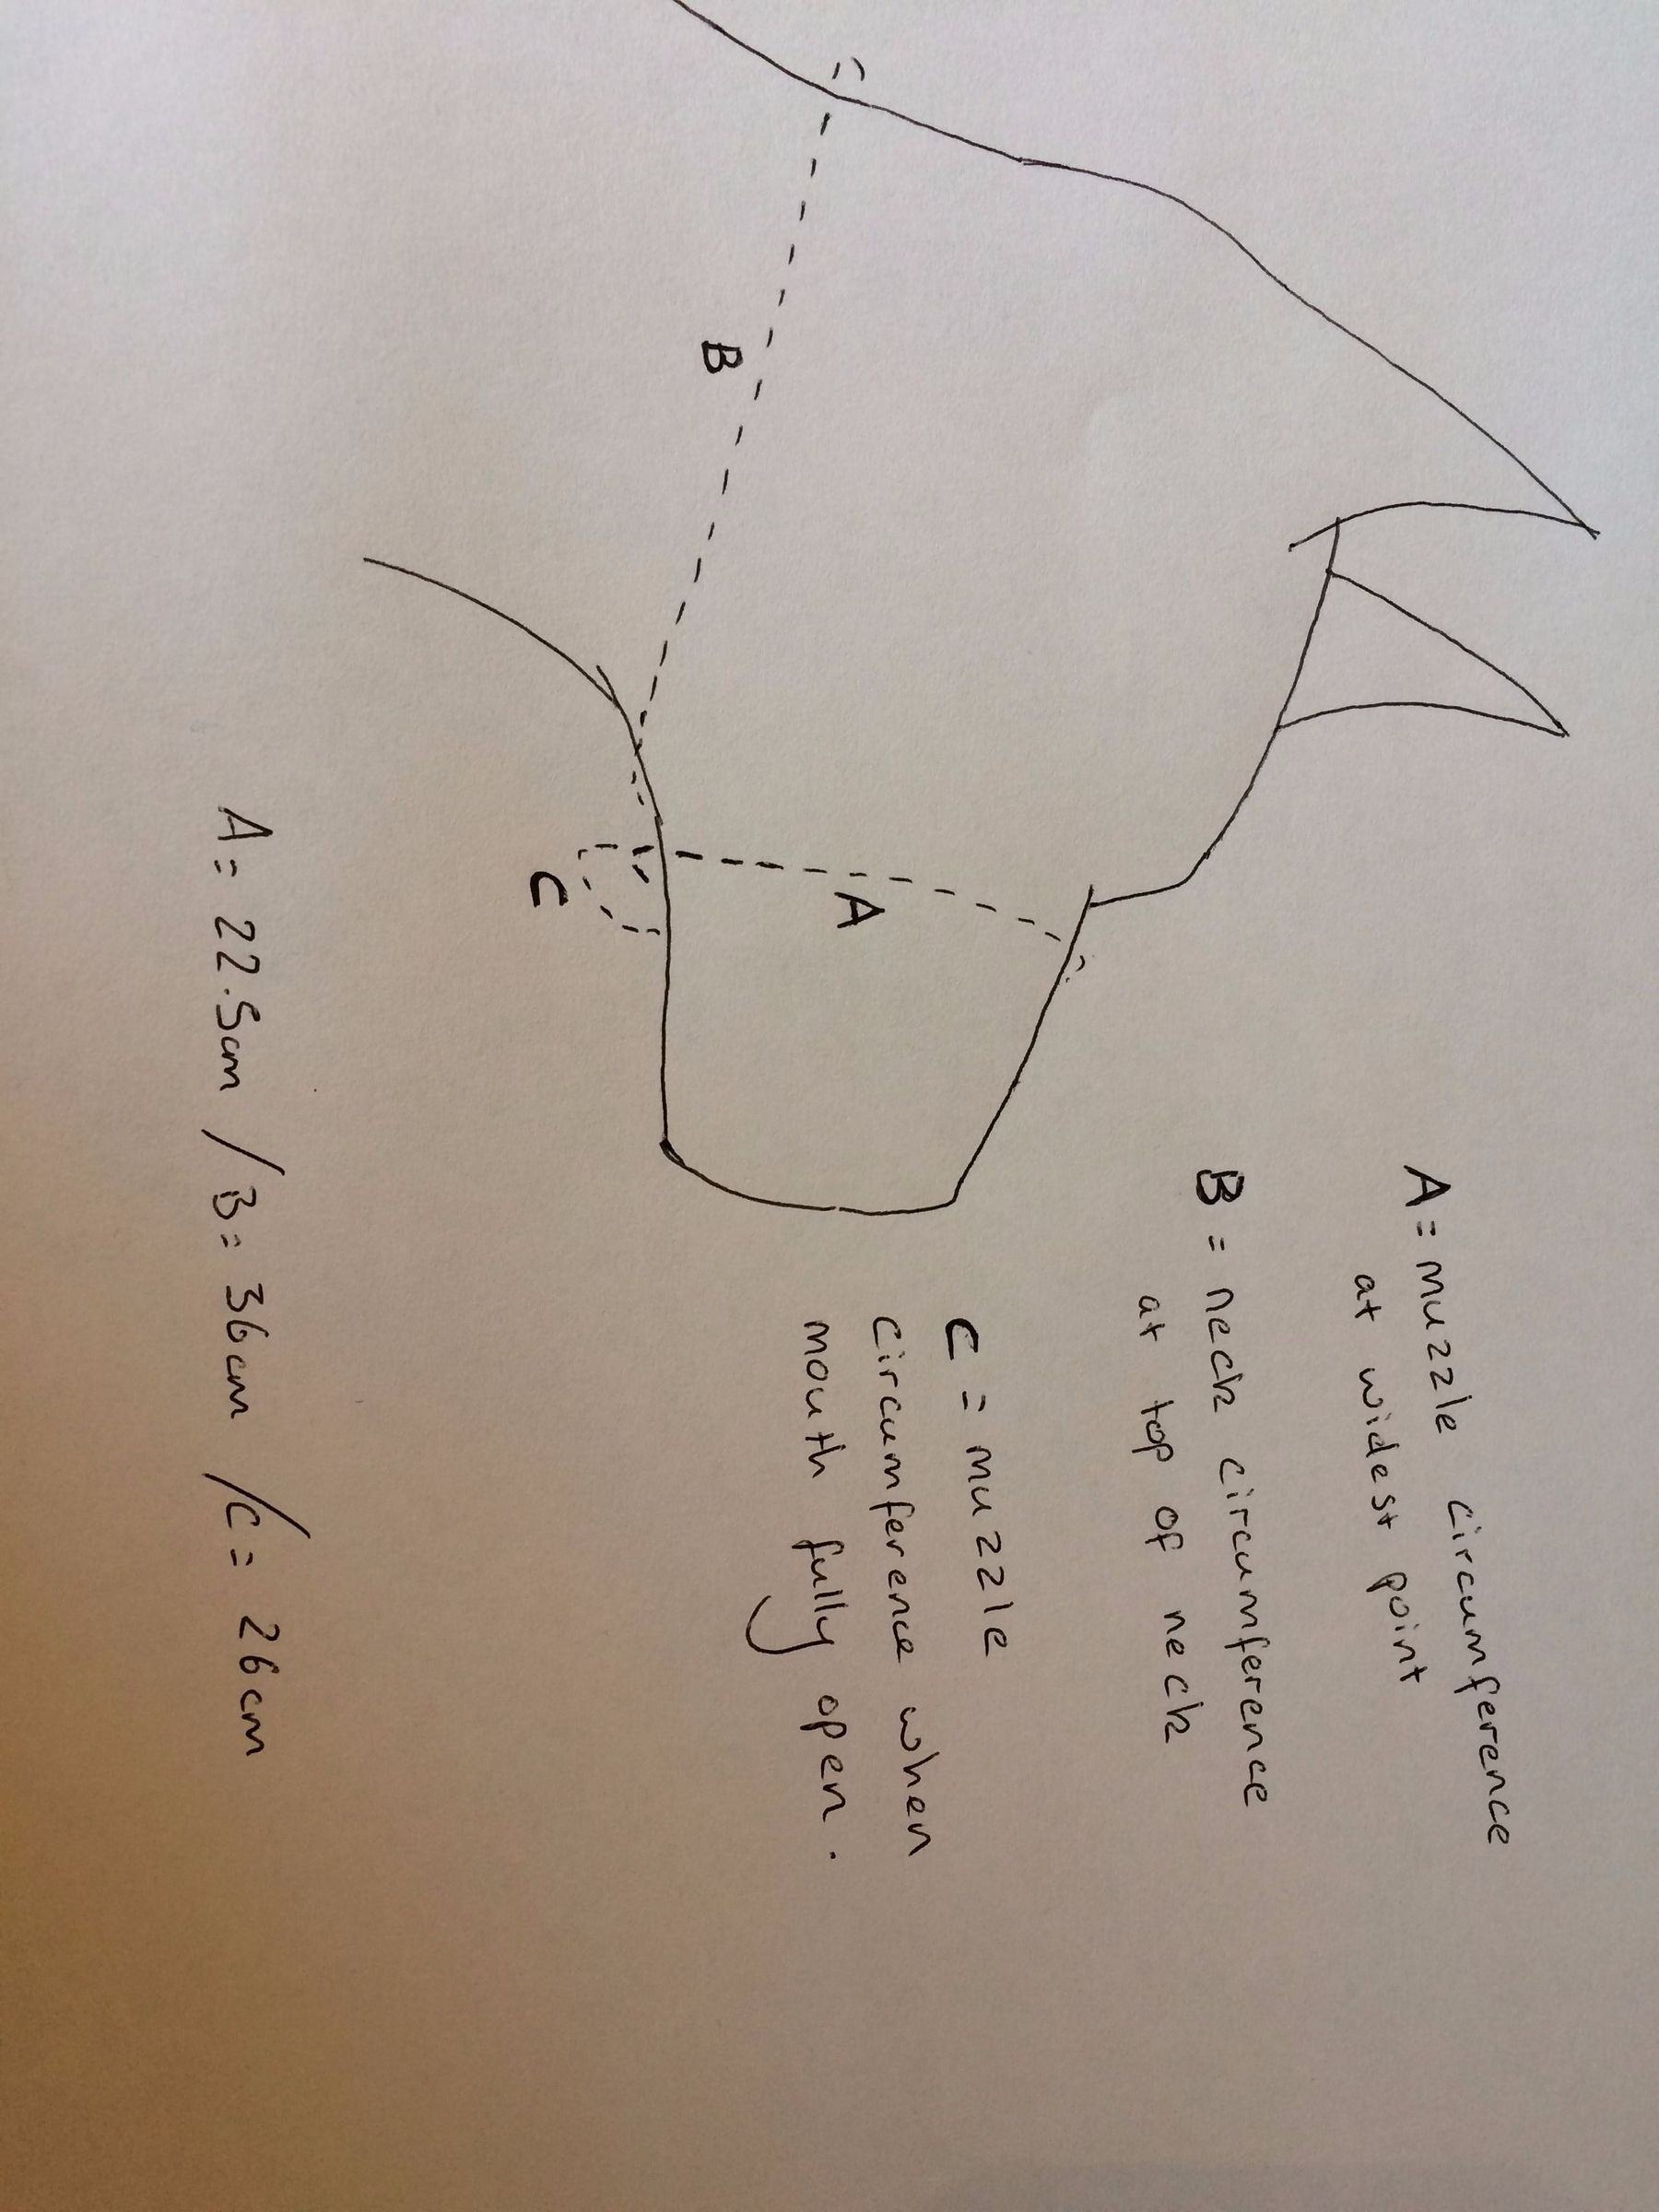 A = muzzle circumference
at widest point
B = neck circumference
at top of neck
C = muzzle
circumference when
mouth fully open.
A
B
C
A = 22.5cm / B = 36cm / C = 26cm